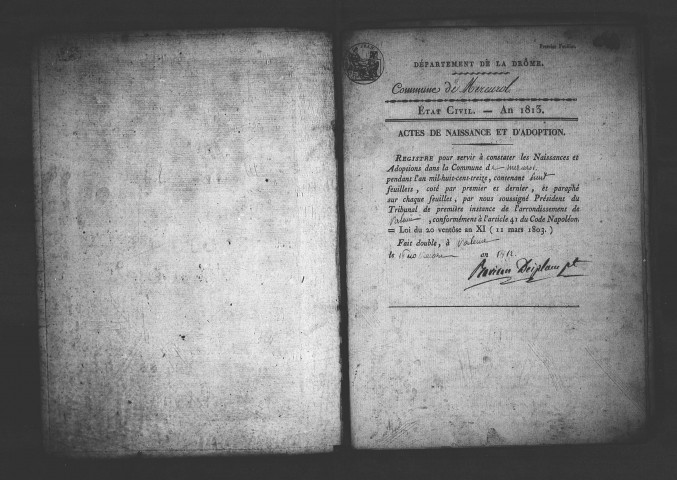 DÉPARTEMENT DE LA DRÔME.
Commune de Mercurol
ETAT CIVIL. — AN 1813.
ACTES DE NAISSANCE ET D'ADOPTION.
REGISTRE pour servir à constater les Naissances et
Adoptions dans la Commune de Mercurol
pendant l'an mil-huit-cent-treize, contenant huit
feuillets, coté par premier et dernier, et paraphé
sur chaque feuillet, par nous soussigné Président du
Tribunal de première instance de l'arrondissement de
Valence, conformément à l'article 41 du Code Napoléon.
= Loi du 20 ventôse an XI ( 11 mars 1803. )
Fait double, à Valence
le an 1812.